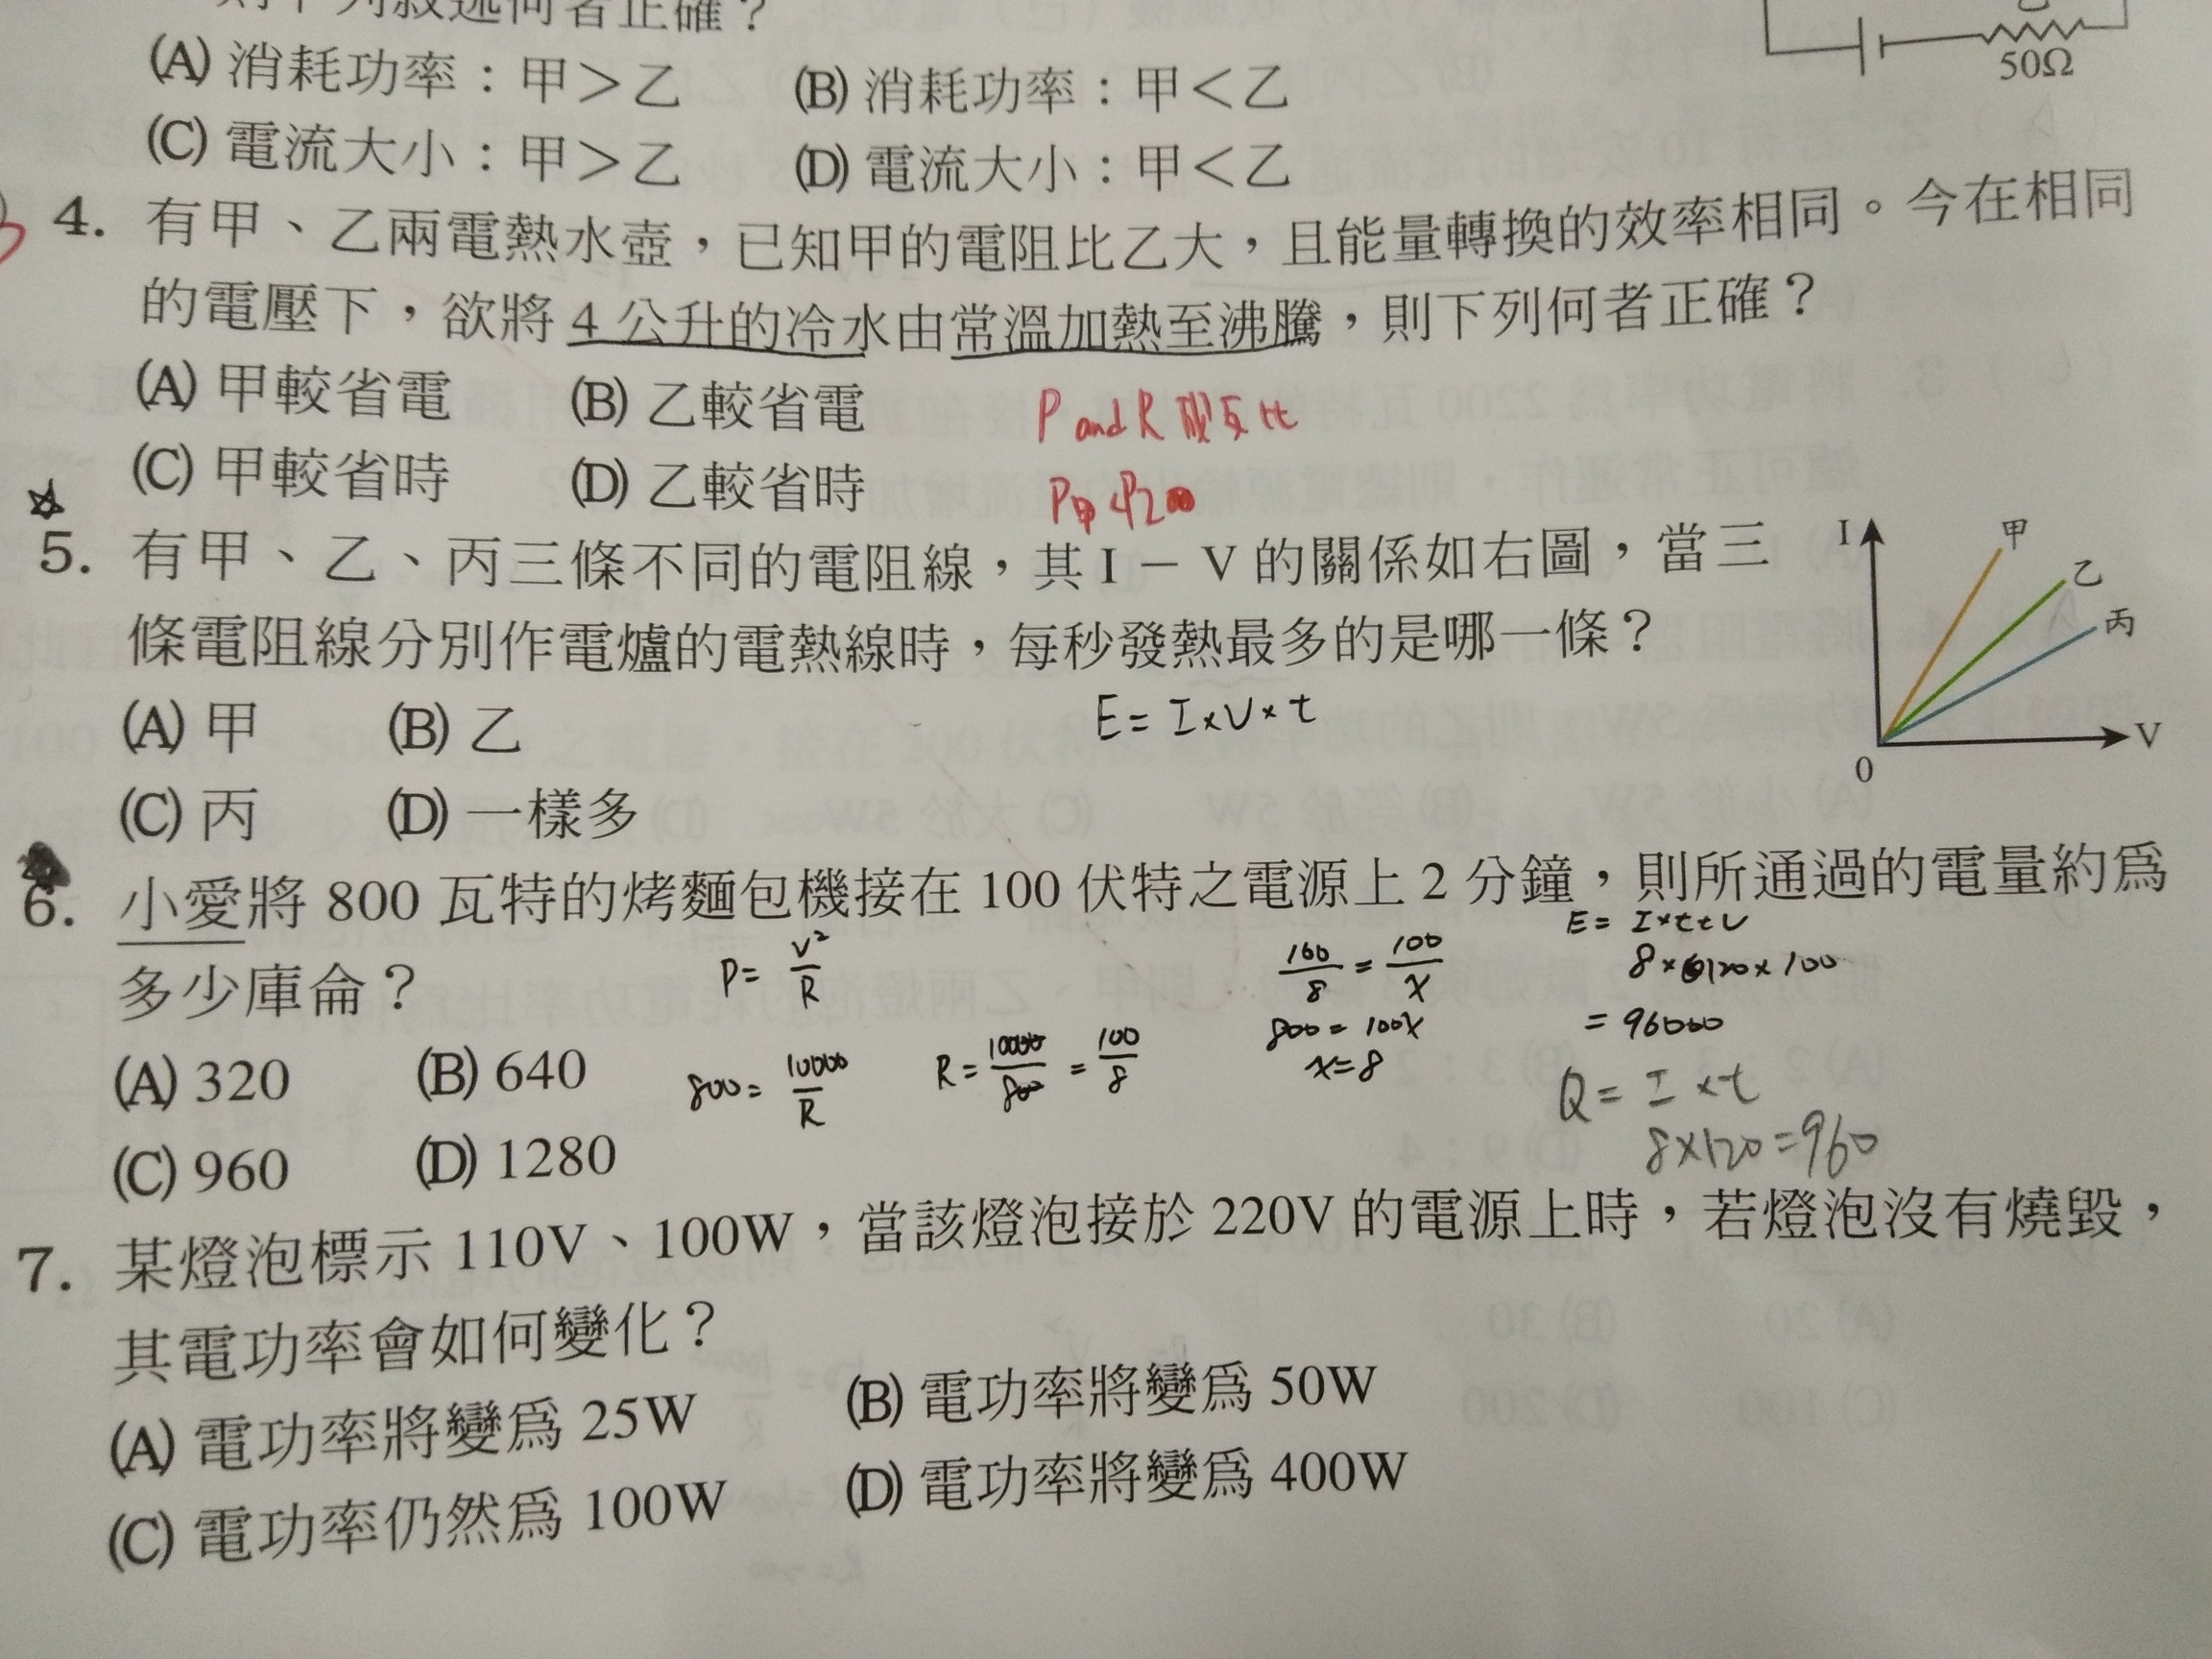 則下列敘述何者正確？
(A) 消耗功率：甲＞乙 (B) 消耗功率：甲＜乙
50Ω
(C) 電流大小：甲＞乙 (D) 電流大小：甲＜乙
4. 有甲、乙兩電熱水壺，已知甲的電阻比乙大，且能量轉換的效率相同。今在相同
的電壓下，欲將 4 公升的冷水由常溫加熱至沸騰，則下列何者正確？
(A) 甲較省電 (B) 乙較省電
P and R 成反比
(C) 甲較省時 (D) 乙較省時
P甲<P乙
5. 有甲、乙、丙三條不同的電阻線，其 I － V 的關係如右圖，當三
條電阻線分別作電爐的電熱線時，每秒發熱最多的是哪一條？
I 甲 乙 丙 0 V
(A) 甲 (B) 乙
E = I×V×t
(C) 丙 (D) 一樣多
6. 小愛將 800 瓦特的烤麵包機接在 100 伏特之電源上 2 分鐘，則所通過的電量約爲
多少庫侖？
P = V²/R
800 = 10000/R
R = 10000/800 = 100/8
100/8 = 100/x
800 = 100x
x = 8
E = I×t×V
8×120×100
= 96000
Q = I×t
8×120=960
(A) 320 (B) 640
(C) 960 (D) 1280
7. 某燈泡標示 110V、100W，當該燈泡接於 220V 的電源上時，若燈泡沒有燒毀，
其電功率會如何變化？
(A) 電功率將變爲 25W (B) 電功率將變爲 50W
(C) 電功率仍然爲 100W (D) 電功率將變爲 400W